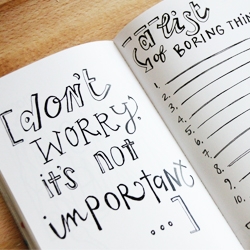 [don't
WORRY!
it's not
important
...]
[a list
of BORING THIN
1.
2.
3.
4.
5.
6.
7.
8.
9.
10.